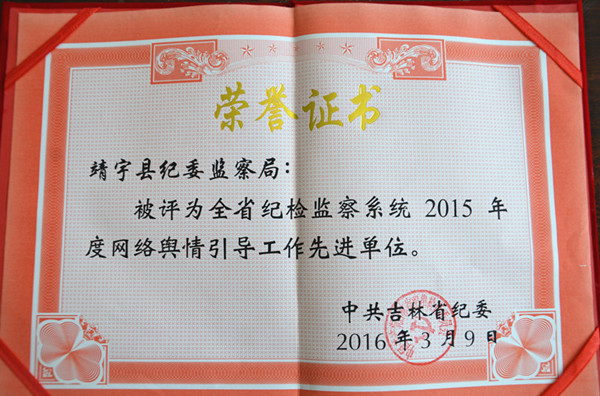 荣誉证书
靖宇县纪委监察局：
被评为全省纪检监察系统 2015 年
度网络舆情引导工作先进单位。
中共吉林省纪委
2016 年 3 月 9 日